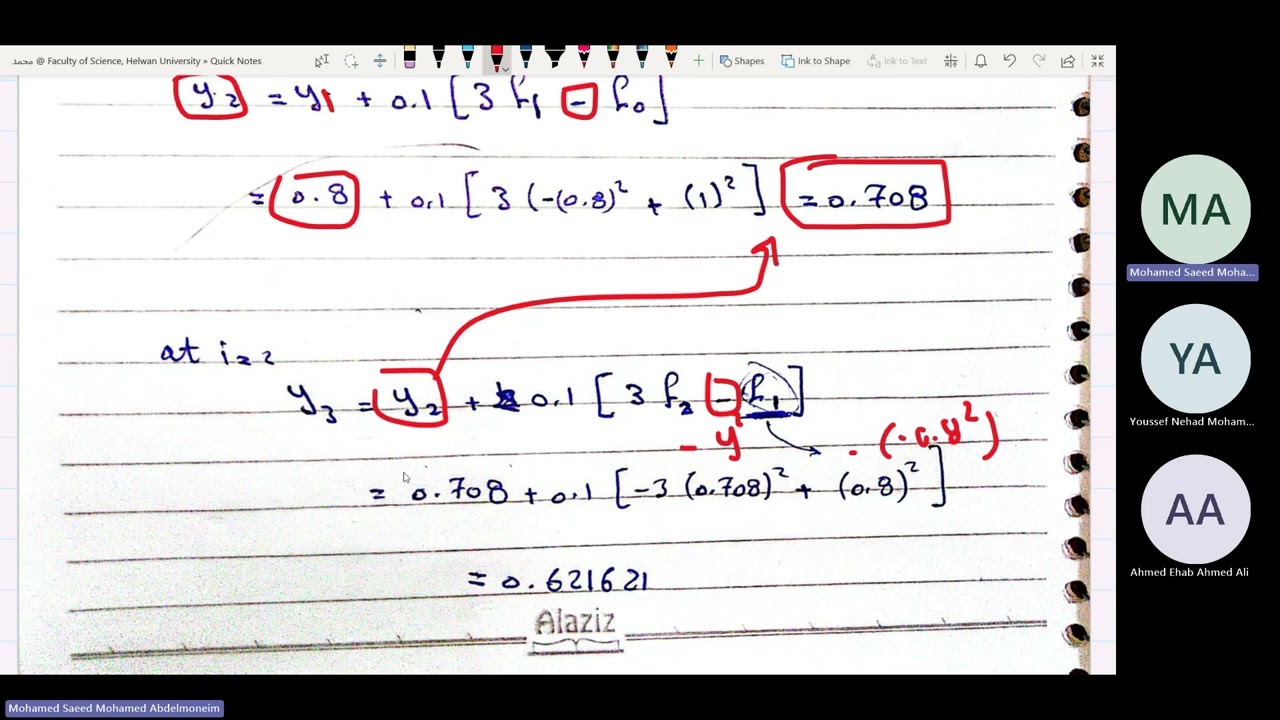 محمد @ Faculty of Science, Helwan University » Quick Notes
Shapes
Ink to Shape
Ink to Text
y2 = y1 + 0.1 [ 3 f1 - f0 ]
= 0.8 + 0.1 [ 3 (-(0.8)² + (1)² ] = 0.708
at i=2
y3 = y2 + 0.1 [ 3 f2 - f1 ]
- y²
= 0.708 + 0.1 [ -3 (0.708)² + (0.8)² ]
= 0.621621
Alaziz
MA
Mohamed Saeed Moha...
YA
Youssef Nehad Moham...
AA
Ahmed Ehab Ahmed Ali
Mohamed Saeed Mohamed Abdelmoneim